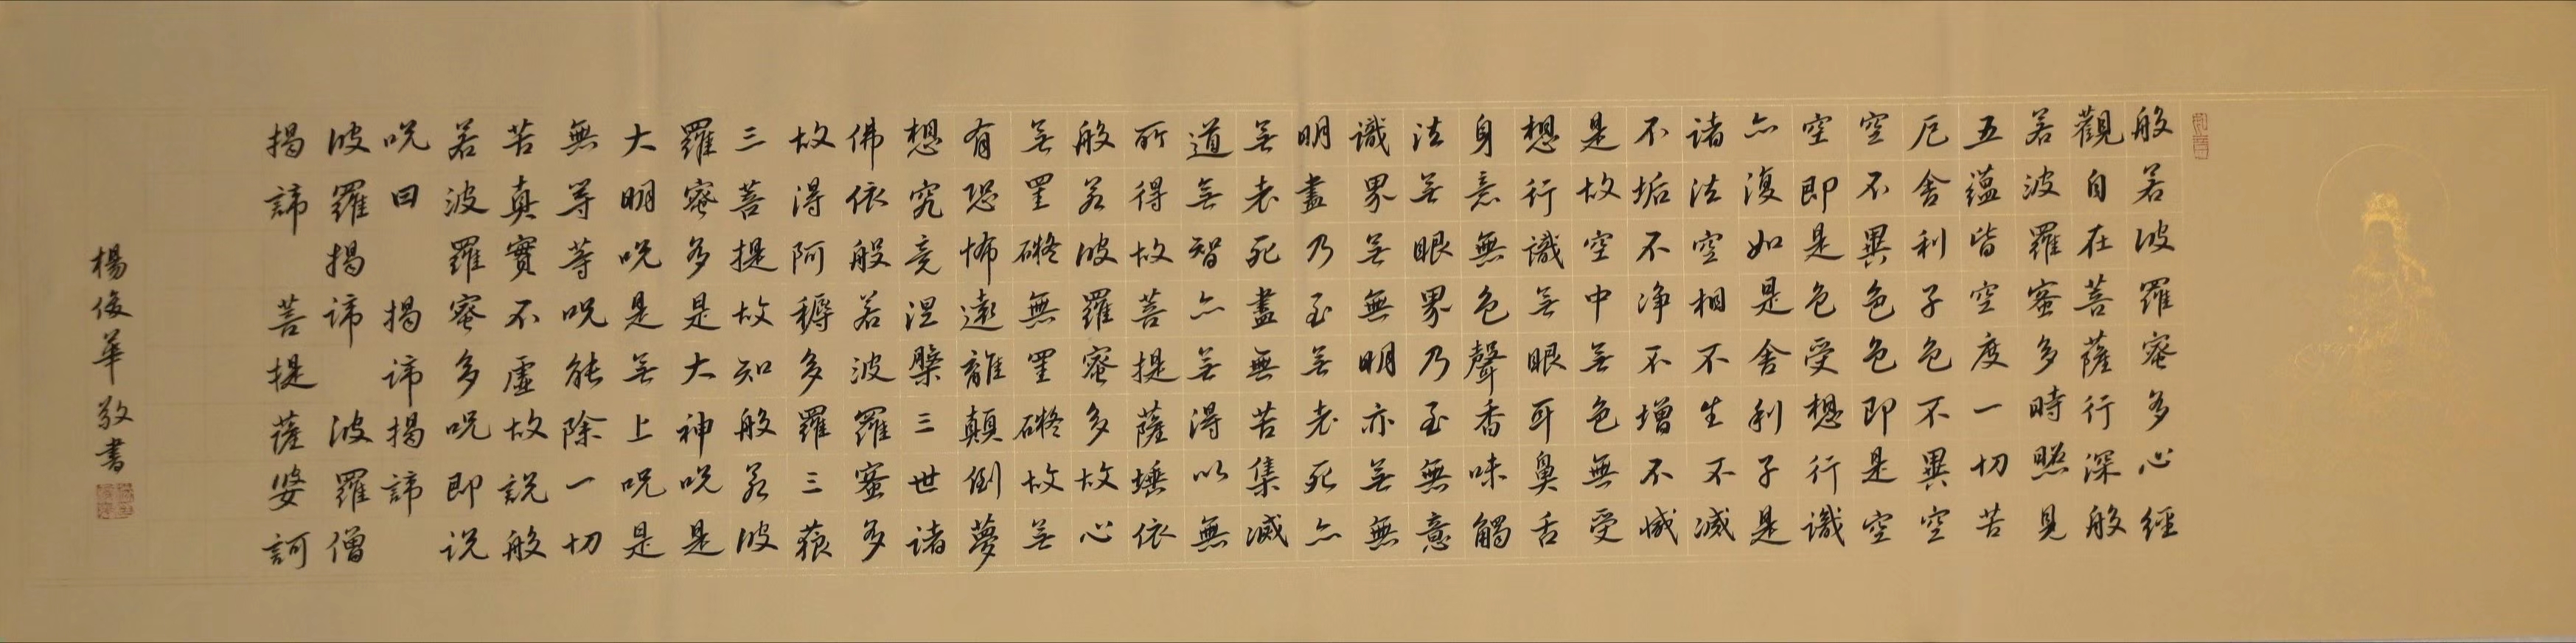 般若波羅蜜多心經
觀自在菩薩行深般
若波羅蜜多時照見
五蘊皆空度一切苦
厄舍利子色不異空
空不異色色即是空
空即是色受想行識
亦復如是舍利子是
諸法空相不生不滅
不垢不净不增不減
是故空中無色無受
想行識無眼耳鼻舌
身意無色聲香味觸
法無眼界乃至無意
識界無無明亦無無
明盡乃至無老死亦
無老死盡無苦集滅
道無智亦無得以無
所得故菩提薩埵依
般若波羅蜜多故心
無罣礙無罣礙故無
有恐怖遠離顛倒夢
想究竟涅槃三世諸
佛依般若波羅蜜多
故得阿耨多羅三藐
三菩提故知般若波
羅蜜多是大神呪是
大明呪是無上呪是
無等等呪能除一切
苦真實不虛故說般
若波羅蜜多呪即说
呪曰 揭諦揭諦
波羅揭諦 波羅僧
揭諦 菩提薩婆訶
楊俊華敬書